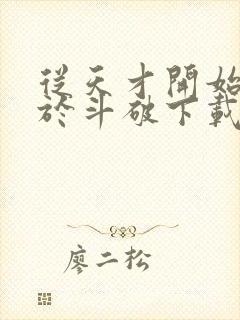 從天才開始
於斗破下載
廖二松